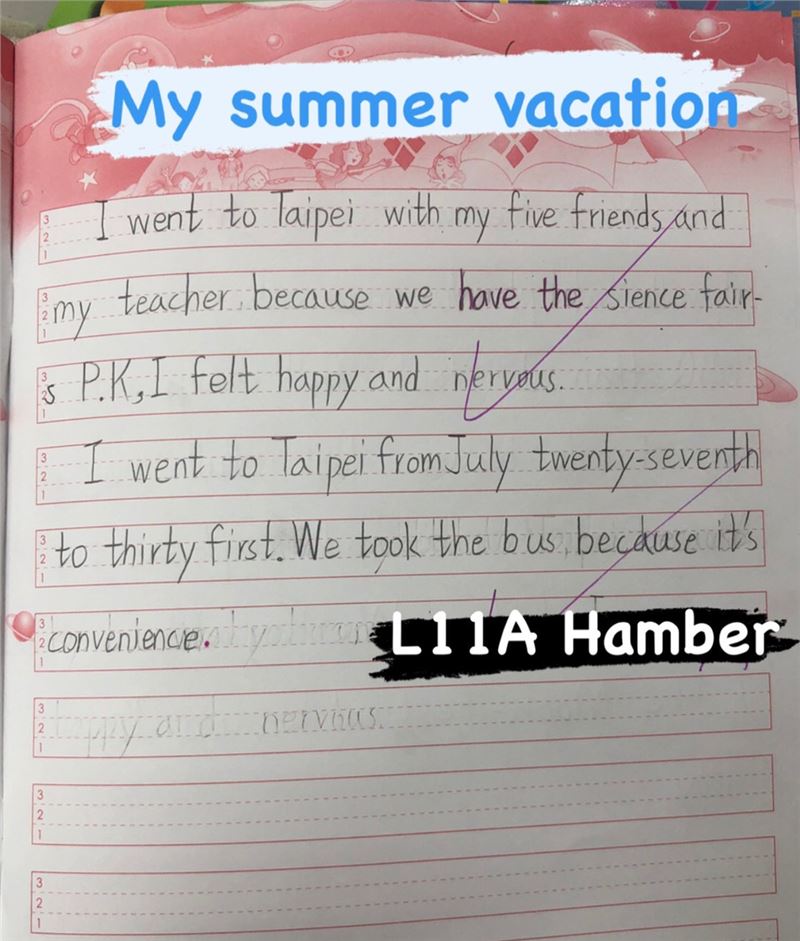 My summer vacation
I went to Taipei with my five friends and
my teacher, because we have the sience fair-
s P.K, I felt happy and nervous.
I went to Taipei from July twenty-seventh
to thirty first. We took the bus, because it's
convenience.
L11A Hamber
happy and nervous.